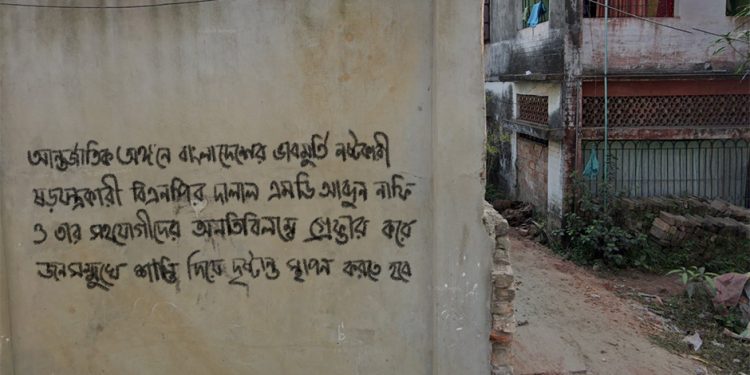 আন্তর্জাতিক অঙ্গনে বাংলাদেশের ভাবমূর্তি নষ্টকারী
ষড়যন্ত্রকারী বিএনপির দালাল এমডি আব্দুন নাফি
ও তার সহযোগীদের অনতিবিলম্বে গ্রেপ্তার করে
জনসম্মুখে শাস্তি দিয়ে দৃষ্টান্ত স্থাপন করতে হবে